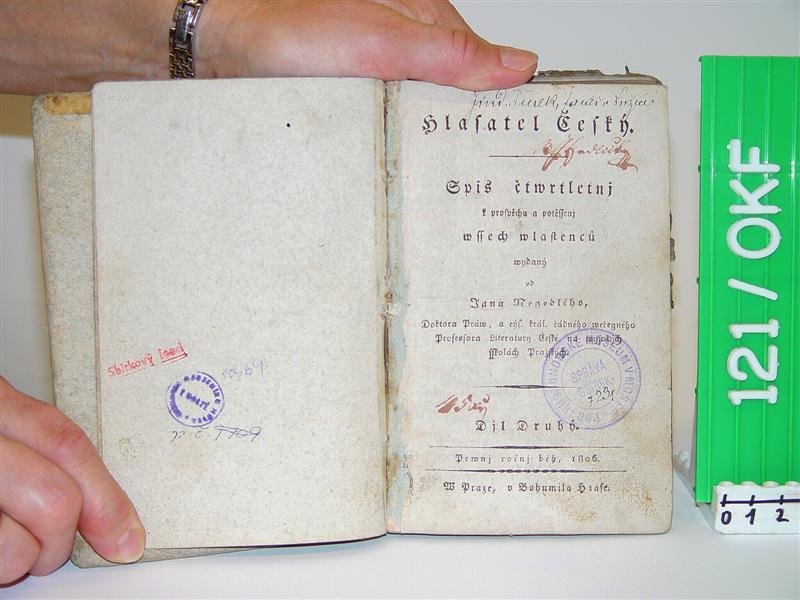 Sbírkový fond
Hlasatel Český.
Spis čtwrtletnj
k prospěchu a potěssenj
wssech wlastenců
wydaný
od
Jana Negedlého,
Doktora Práw, a cýs. král. řádného weregného
Professora Literatury České na wysokých
sskolách Pražských.
SPRÁVA
SBÍREK
7231
Djl Druhý.
Prwnj ročnj běh, 1806.
W Praze, v Bohumila Haase.
121 / OKF
0 1 2